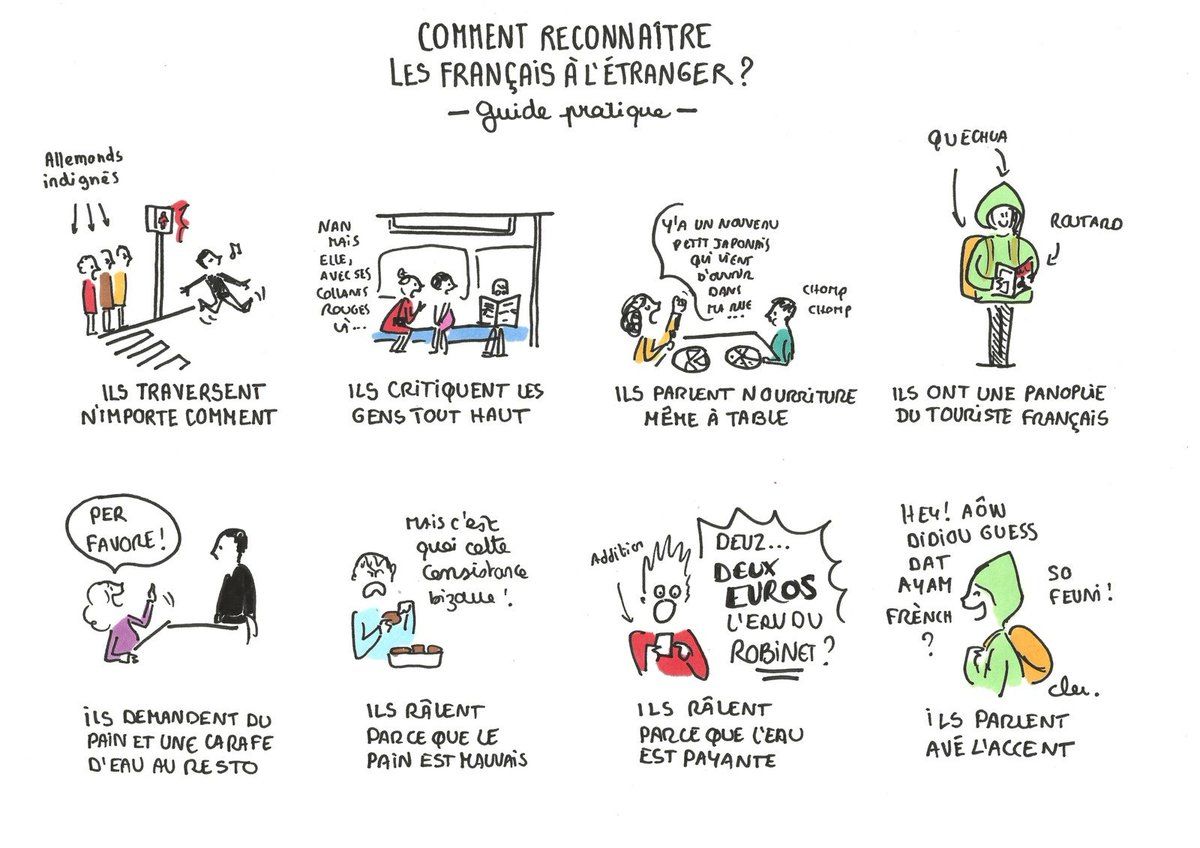 COMMENT RECONNAÎTRE
LES FRANÇAIS À L'ÉTRANGER ?
— Guide pratique —
Allemands
indignés
ILS TRAVERSENT
N'IMPORTE COMMENT
NAN
MAIS
ELLE,
AVEC SES
COLLANTS
ROUGES
LÀ...
ILS CRITIQUENT LES
GENS TOUT HAUT
Y'A UN NOUVEAU
PETIT JAPONAIS
QUI VIENT
D'OUVRIR
DANS
MA RUE
...
CHOMP
CHOMP
ILS PARLENT NOURRITURE
MÊME À TABLE
QUECHUA
ROUTARD
ILS ONT UNE PANOPLIE
DU TOURISTE FRANÇAIS
PER
FAVORE !
ILS DEMANDENT DU
PAIN ET UNE CARAFE
D'EAU AU RESTO
MAIS c'est
quoi cette
consistance
bizarre !
ILS RÂLENT
PARCE QUE LE
PAIN EST MAUVAIS
Addition
DEUZ...
DEUX
EUROS
L'EAU DU
ROBINET ?
ILS RÂLENT
PARCE QUE L'EAU
EST PAYANTE
HEY ! AÔW
DIDIOU GUESS
DAT
AYAM
FRÈNCH
?
SO
FEUNI !
cleu.
ILS PARLENT
AVÉ L'ACCENT